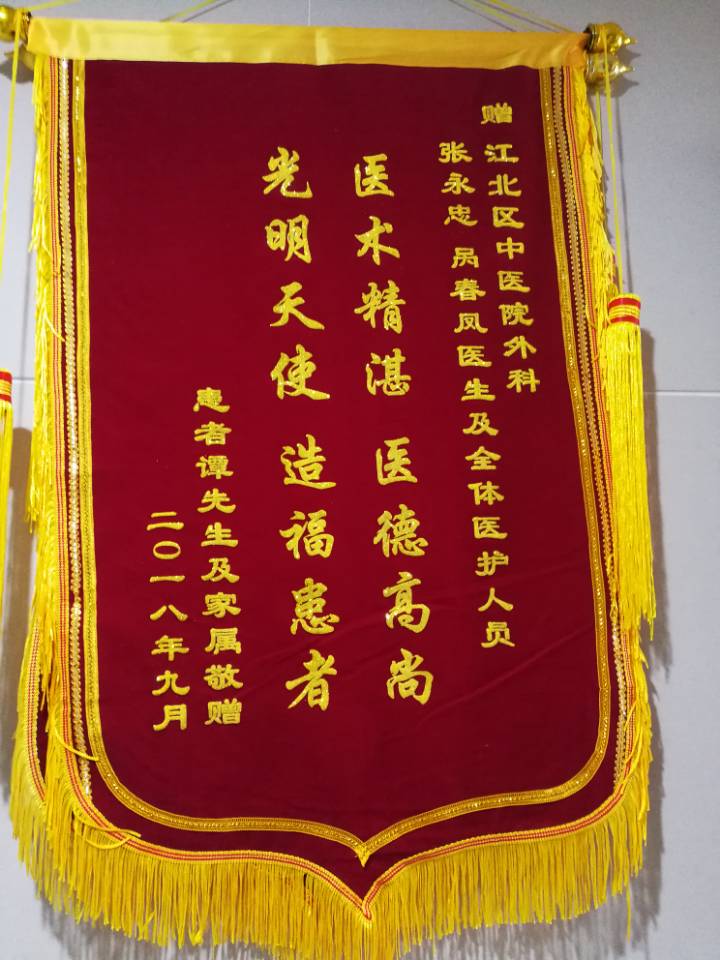 赠 江北区中医院外科
张永忠 呙春凤医生及全体医护人员
医术精湛 医德高尚
光明天使 造福患者
患者谭先生及家属敬赠
二〇一八年九月